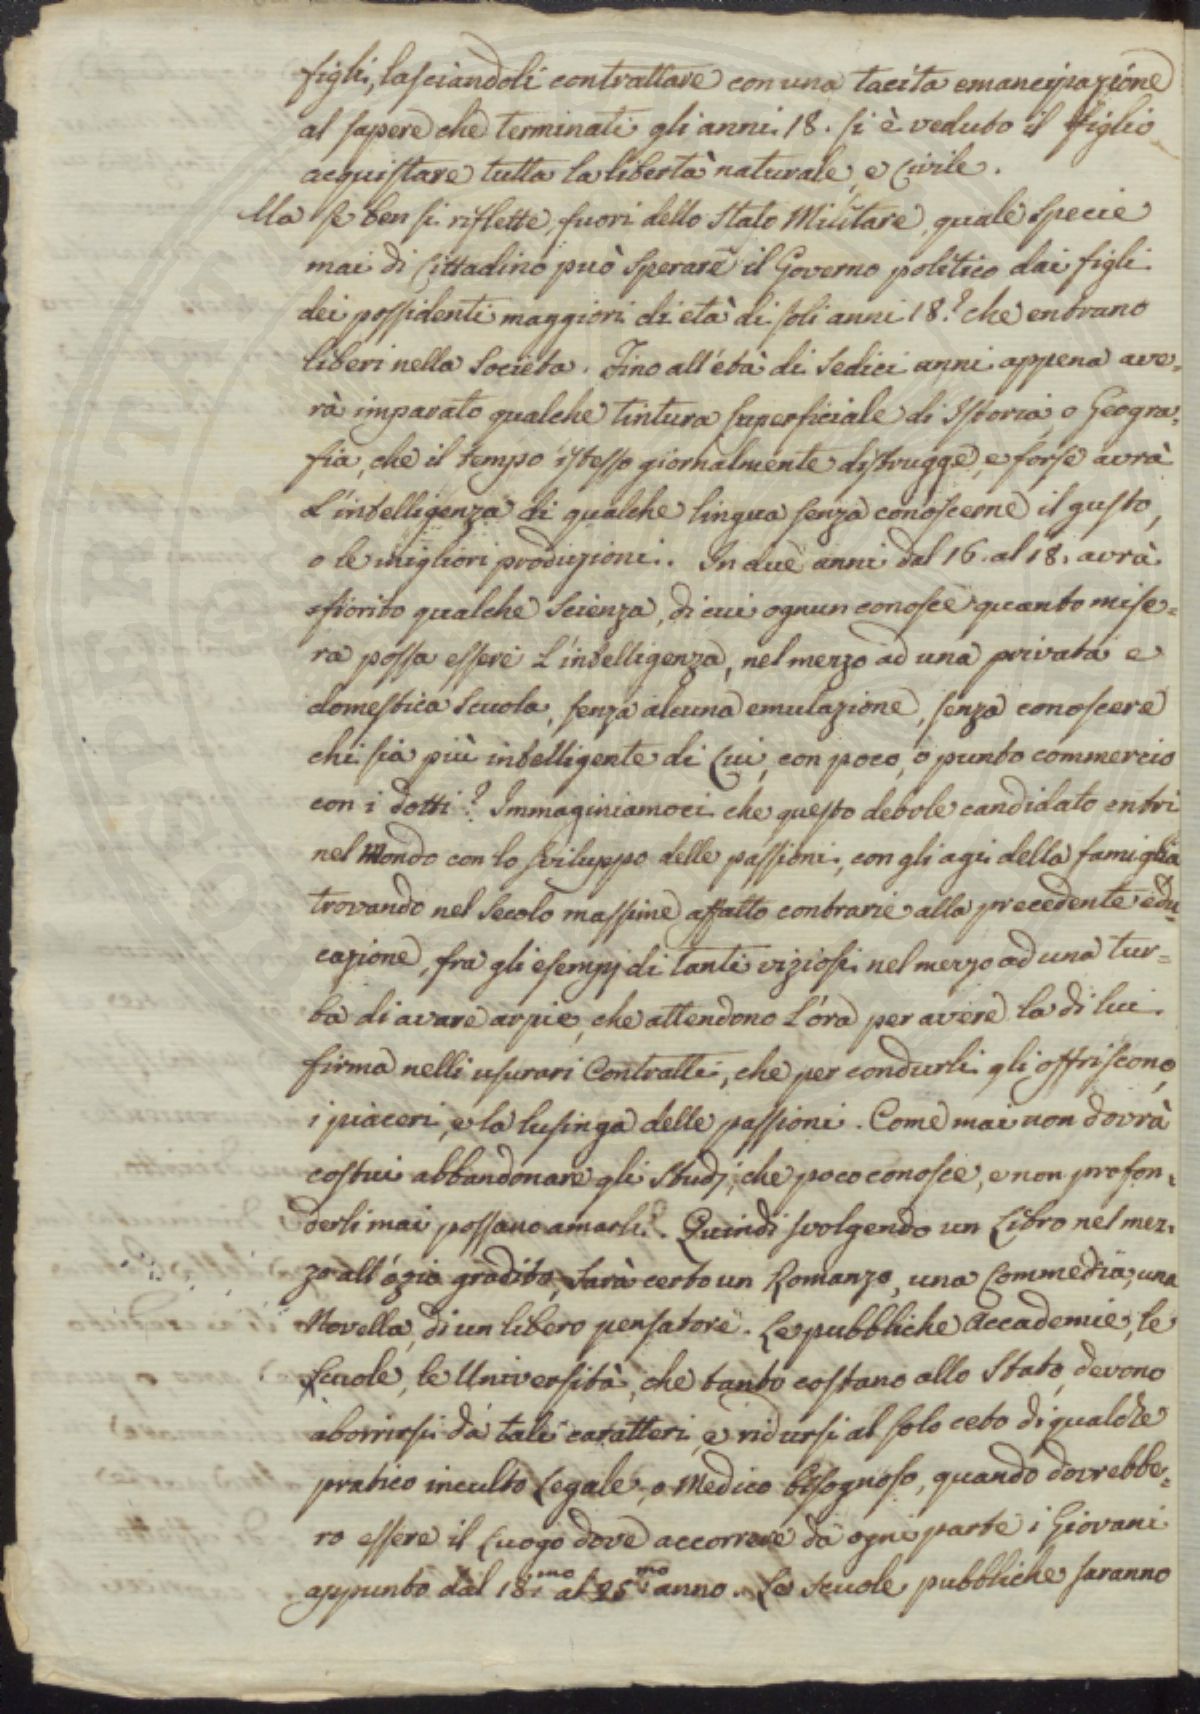 figli, lasciandoli contrattare con una tacita emancipazione
al sapere che terminati gli anni 18. si è veduto il figlio
acquistare tutta la libertà naturale, e Civile.
Ma se ben si riflette, fuori dello Stato Militare, quale specie
mai di Cittadino può sperare il Governo politico dai figli
dei possidenti maggiori di età di soli anni 18.? che entrano
liberi nella Societa. Fino all'età di Sedici anni appena ave=
rà imparato qualche tintura superficiale di Istoria, o Geogra=
fia, che il tempo istesso giornalmente distrugge, e forse avrà
L'intelligenza di qualche lingua senza conoscerne il gusto,
o le migliori produzioni. In due anni dal 16. al 18. avrà
sfiorito qualche Scienza, di cui ognun conosce quanto mise=
ra possa essere L'intelligenza, nel mezzo ad una privata e
domestica Scuola, senza alcuna emulazione, senza conoscere
chi sia più intelligente di Lui, con poco, o punto commercio
con i dotti? Immaginiamoci che questo debole candidato entri
nel Mondo con lo sviluppo delle passioni, con gli agi della famiglia
trovando nel Secolo massime affatto contrarie alla precedente edu=
cazione, fra gli esempj di tanti viziosi nel mezzo ad una tur=
ba di avare arpie, che attendono L'ora per avere la di lui
firma nelli usurari Contratti, che per condurli gli offriscono
i piaceri, e la lusinga delle passioni. Come mai non dovrà
costui abbandonare gli Studj, che poco conosce, e non profon=
derli mai possano amarli? Quindi svolgendo un Libro nel mez=
zo all'ozio gradito, sarà certo un Romanzo, una Commedia, una
Novella, di un libero pensatore. Le pubbliche Accademie, le
Scuole, le Università, che tanto costano allo Stato, devono
aborrirsi da tali caratteri, e ridursi al solo ceto di qualche
pratico inculto Legale, o Medico bisognoso, quando dovrebbe=
ro essere il Luogo dove accorrere da ogni parte i Giovani
appunto dal 18.mo al 25.mo anno. Le Scuole pubbliche saranno